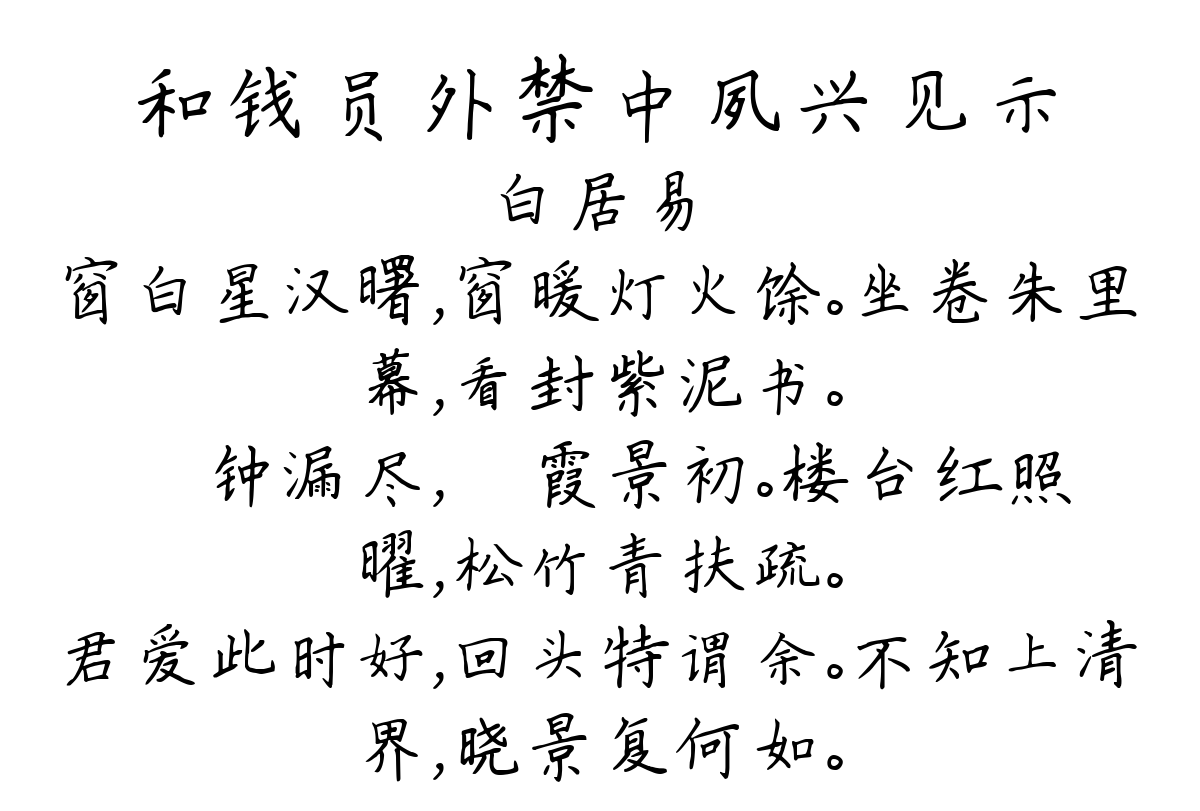 和钱员外禁中夙兴见示
白居易
窗白星汉曙,窗暖灯火馀。坐卷朱里
幕,看封紫泥书。
钟漏尽, 霞景初。楼台红照
曜,松竹青扶疏。
君爱此时好,回头特谓余。不知上清
界,晓景复何如。